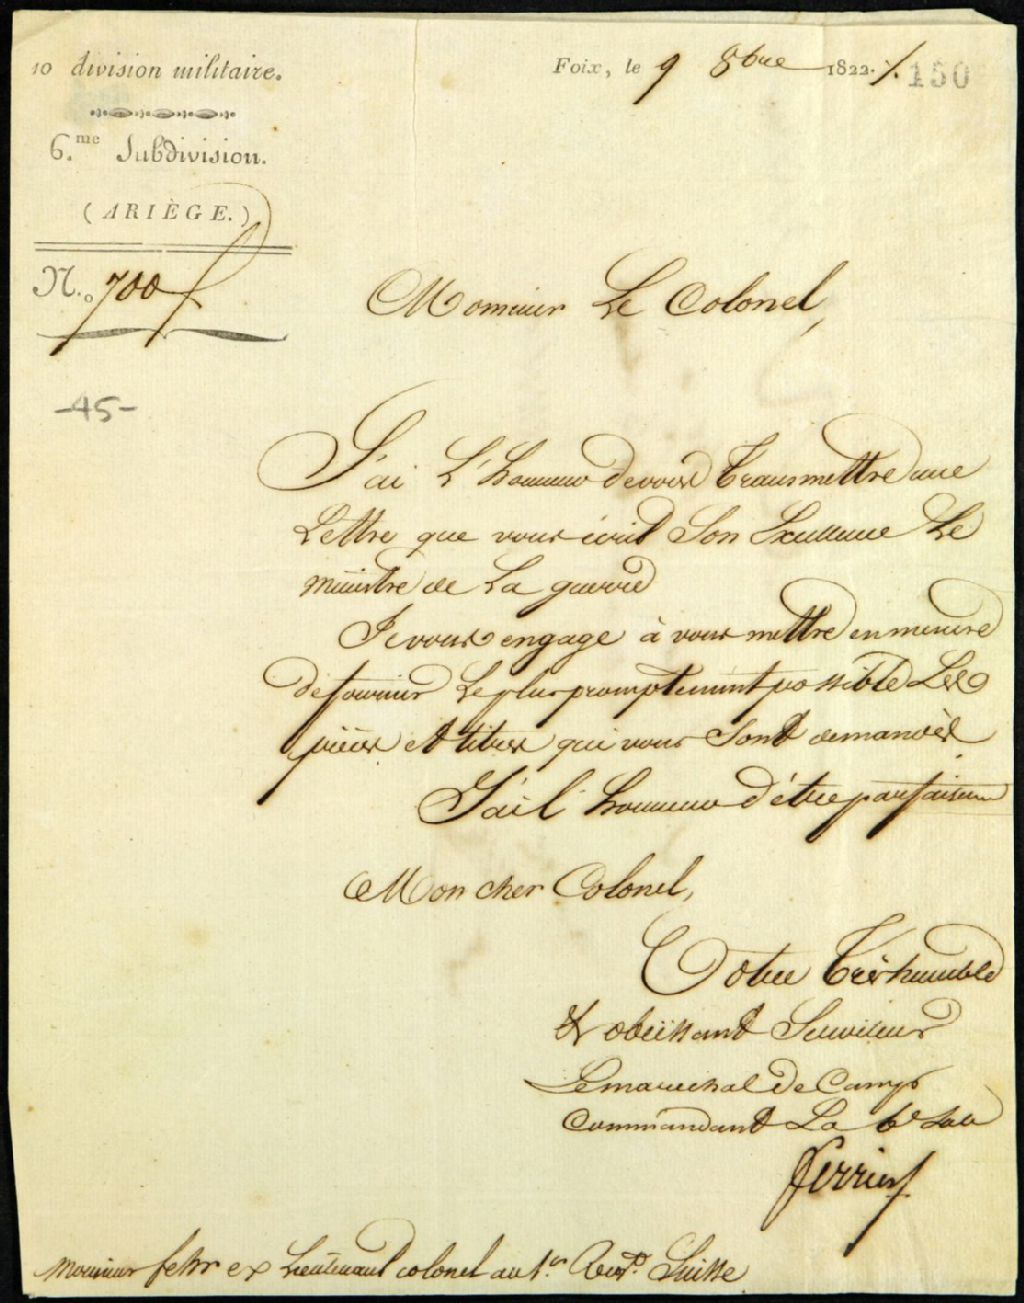 10 division militaire.
Foix, le 9 8bre 1822. 150
6.me Subdivision.
(ARIÈGE.)
N.o 700
Monsieur Le Colonel,
-45-
J'ai L'honneur de vous transmettre une
Lettre que vous écrit Son Excellence Le
ministre de La guerre
Je vous engage à vous mettre en mesure
de fournir Le plus promptement possible Les
pièces et titres qui vous Sont demandés
J'ai l'honneur d'être parfaitem
Mon cher Colonel,
Votre très humble
& obéissant Serviteur
Le marechal de Camp
Commandant La 6e Sub
Monsieur fehr ex Lieutenant colonel au 1er Suisse